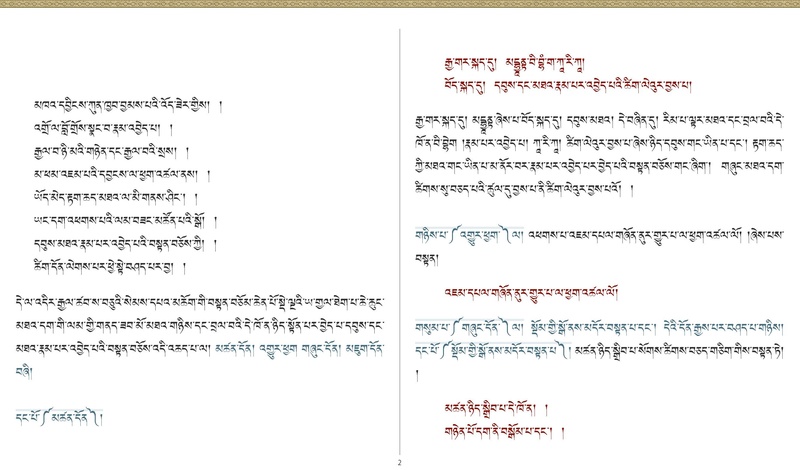 མཁའ་དབྱིངས་ཀུན་ཁྱབ་བྱམས་པའི་འོད་ཟེར་གྱིས། །
འགྲོ་ལ་བློ་གྲོས་སྣང་བ་རྣམ་འབྱེད་པ། །
རྒྱལ་བ་ཉི་མའི་གཉེན་དང་རྒྱལ་བའི་སྲས། །
མ་ཕམ་འཇམ་པའི་དབྱངས་ལ་ཕྱག་འཚལ་ནས། །
ཡོད་མེད་རྟག་ཆད་མཐའ་ལ་མི་གནས་ཤིང་། །
ཡང་དག་འཕགས་པའི་ལམ་བཟང་མཚོན་པའི་སྒོ། །
དབུས་མཐའ་རྣམ་པར་འབྱེད་པའི་བསྟན་བཅོས་ཀྱི། །
ཚིག་དོན་ལེགས་པར་ཕྱེ་སྟེ་བཤད་པར་བྱ། །
དེ་ལ་འདིར་རྒྱལ་ཚབ་ས་བཅུའི་སེམས་དཔའ་མཆོག་གི་བསྟན་བཅོས་ཆེན་པོ་སྡེ་ལྔའི་ཡ་གྱལ་ཐེག་པ་ཆེ་ཆུང་
མཐའ་དག་གི་ལམ་གྱི་གནད་ཟབ་མོ་མཐའ་གཉིས་དང་བྲལ་བའི་དེ་ཁོ་ན་ཉིད་སྟོན་པར་བྱེད་པ་དབུས་དང་
མཐའ་རྣམ་པར་འབྱེད་པའི་བསྟན་བཅོས་འདི་འཆད་པ་ལ། མཚན་དོན། འགྱུར་ཕྱག གཞུང་དོན། མཇུག་དོན་
བཞི།
དང་པོ་༼མཚན་དོན་༽།
རྒྱ་གར་སྐད་དུ། མདྷྱནྟ་བི་བྷཾ་ག་ཀཱ་རི་ཀཱ།
བོད་སྐད་དུ། དབུས་དང་མཐའ་རྣམ་པར་འབྱེད་པའི་ཚིག་ལེའུར་བྱས་པ།
རྒྱ་གར་སྐད་དུ། མདྷྱནྟ་ཞེས་པ་བོད་སྐད་དུ། དབུས་མཐའ། དེ་བཞིན་དུ། རིམ་པ་ལྟར་མཐའ་དང་བྲལ་བའི་དེ་
ཀྱི་མཐའ་གང་ཡིན་པ་མ་ནོར་བར་རྣམ་པར་འབྱེད་པར་བྱེད་པའི་བསྟན་བཅོས་གང་ཞིག། གཞུང་མཐའ་དག་
ཚིགས་སུ་བཅད་པའི་ཚུལ་དུ་བྱས་པ་ནི་ཚིག་ལེའུར་བྱས་པའོ། །
གཉིས་པ་༼འགྱུར་ཕྱག་༽ལ། འཕགས་པ་འཇམ་དཔལ་གཞོན་ནུར་གྱུར་པ་ལ་ཕྱག་འཚལ་ལོ། །ཞེས་པས་
བསྟན།
འཇམ་དཔལ་གཞོན་ནུར་གྱུར་པ་ལ་ཕྱག་འཚལ་ལོ།
གསུམ་པ་༼གཞུང་དོན་༽ལ། སྡོམ་གྱི་སྒོ་ནས་མདོར་བསྟན་པ་དང་། དེའི་དོན་རྒྱས་པར་བཤད་པ་གཉིས།
དང་པོ་༼སྡོམ་གྱི་སྒོ་ནས་མདོར་བསྟན་པ་༽། མཚན་ཉིད་སྒྲིབ་པ་སོགས་ཚིགས་བཅད་གཅིག་གིས་བསྟན་ཏེ།
།
མཚན་ཉིད་སྒྲིབ་པ་དེ་ཁོ་ན། །
གཉེན་པོ་དག་ནི་བསྒོམ་པ་དང་། །
2